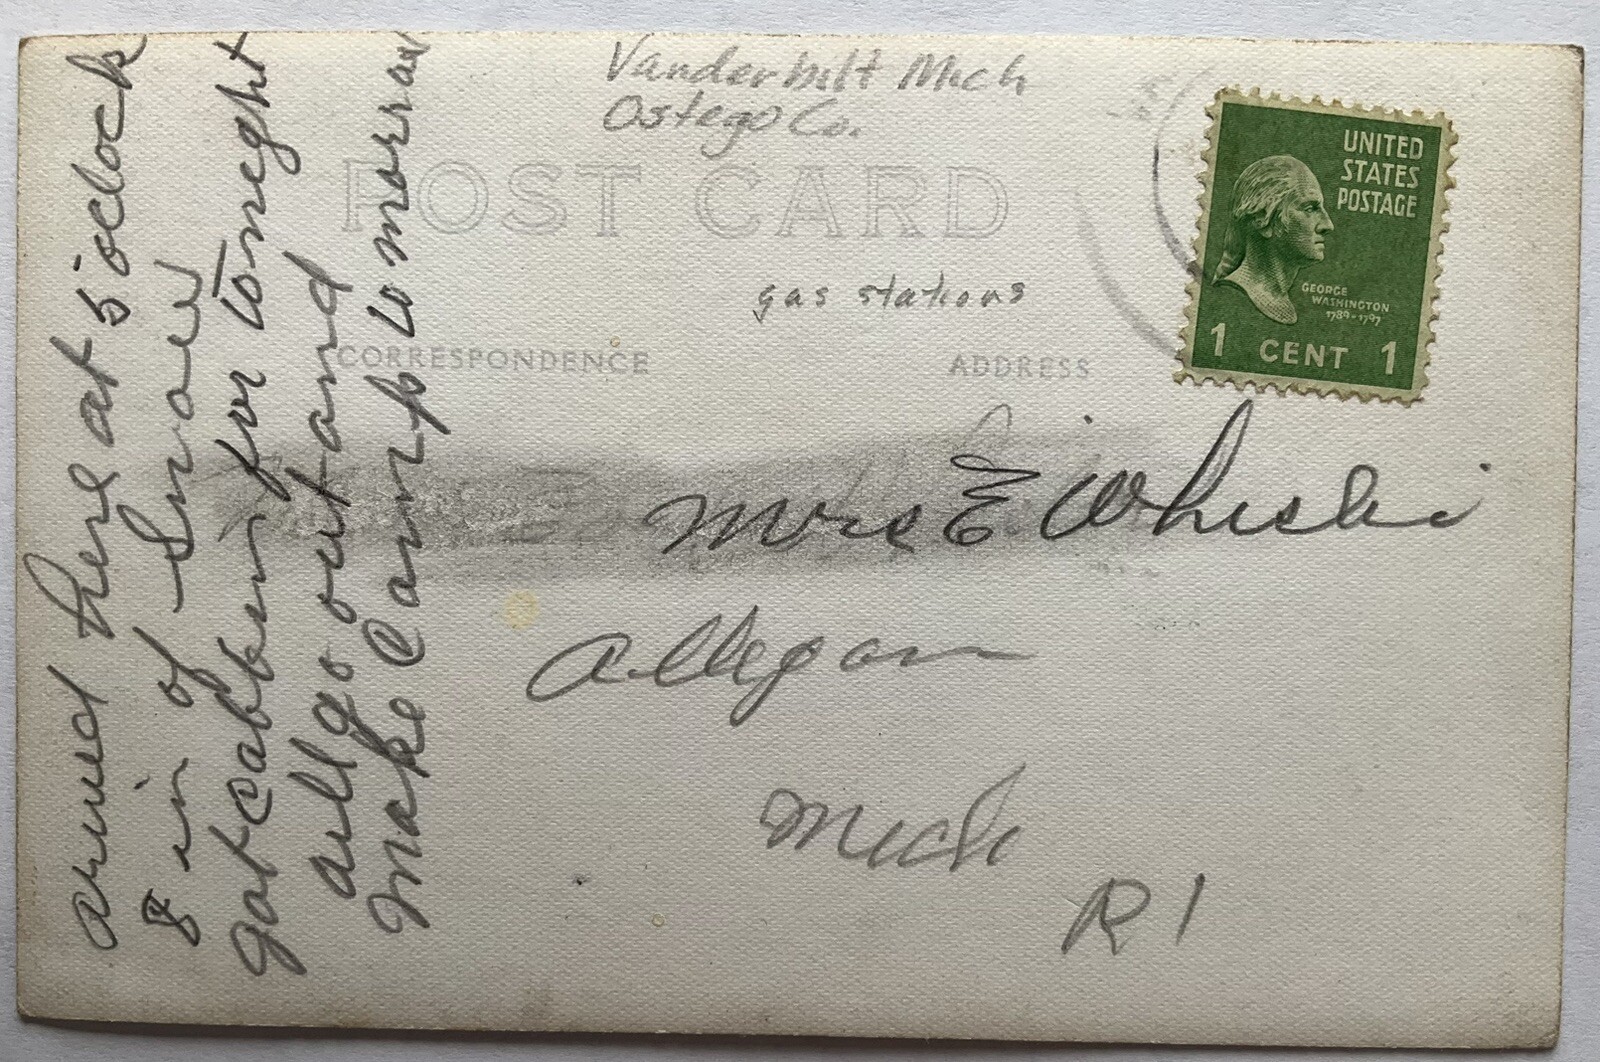 Vanderbilt Mich
Ostego Co.
POST CARD
gas stations
CORRESPONDENCE
ADDRESS
UNITED
STATES
POSTAGE
GEORGE
WASHINGTON
1789-1797
1 CENT 1
arrived here at 5 oclock
8 in of Snow
got cabbin for tonight
will go out and
make Camp to morrow
Mrs E
Allegan
Mich
R 1